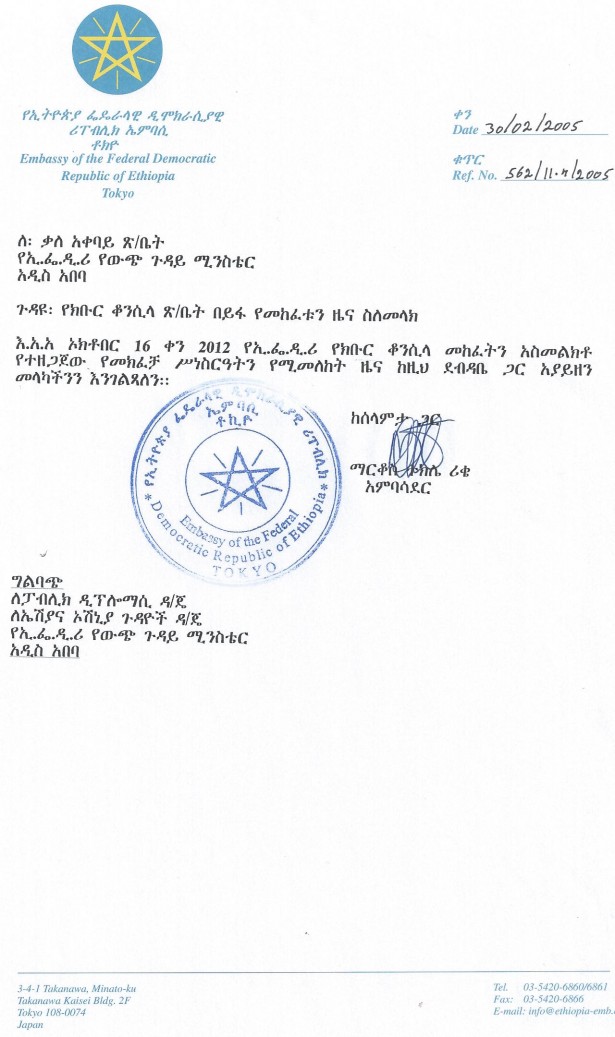 የኢትዮጵያ ፌዴራላዊ ዲሞክራሲያዊ
ሪፐብሊክ ኤምባሲ
ቶክዮ
Embassy of the Federal Democratic
Republic of Ethiopia
Tokyo
ቀን
Date 30/02/2005
ቁጥር
Ref. No. 562/11.7/2005
ለ፡ ቃለ አቀባይ ጽ/ቤት
የኢ.ፌ.ዲ.ሪ የውጭ ጉዳይ ሚንስቴር
አዲስ አበባ
ጉዳዩ፡ የክቡር ቆንሲላ ጽ/ቤት በይፋ የመከፈቱን ዜና ስለመላክ
እ.አ.አ ኦክቶበር 16 ቀን 2012 የኢ.ፌ.ዲ.ሪ የክቡር ቆንሲላ መከፈትን አስመልክቶ
የተዘጋጀው የመክፈቻ ሥነስርዓትን የሚመለከት ዜና ከዚህ ደብዳቤ ጋር አያይዘን
መላካችንን እንገልጻለን፡፡
ከሰላምታ ጋር
ማርቆስ ተክሌ ሪቄ
አምባሳደር
የኢትዮጵያ ፌዴራላዊ ዲሞክራሲያዊ ሪፐብሊክ
ኤምባሲ
ቶኪዮ
Embassy of the Federal
Democratic Republic of Ethiopia
TOKYO
ግልባጭ
ለፓብሊክ ዲፕሎማሲ ዳ/ጄ
ለኤሽያና ኦሽኒያ ጉዳዮች ዳ/ጄ
የኢ.ፌ.ዲ.ሪ የውጭ ጉዳይ ሚንስቴር
አዲስ አበባ
3-4-1 Takanawa, Minato-ku
Takanawa Kaisei Bldg. 2F
Tokyo 108-0074
Japan
Tel. 03-5420-6860/6861
Fax: 03-5420-6866
E-mail: info@ethiopia-emb.